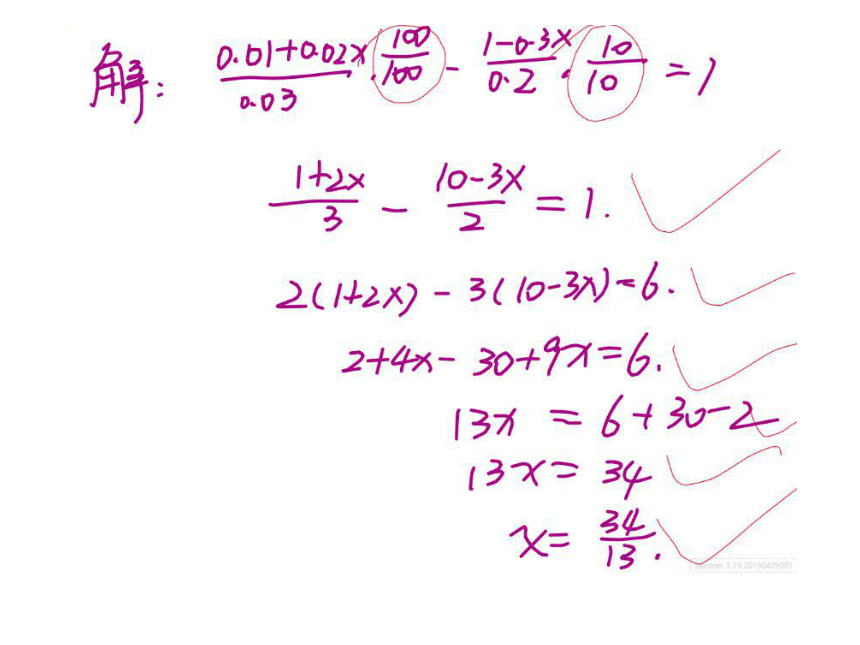 解: (0.01+0.02x)/0.03 · 100/100 - (1-0.3x)/0.2 · 10/10 = 1
(1+2x)/3 - (10-3x)/2 = 1.
2(1+2x) - 3(10-3x) = 6.
2+4x - 30+9x = 6.
13x = 6+30-2
13x = 34
x = 34/13.
Version: 3.19.20190409001